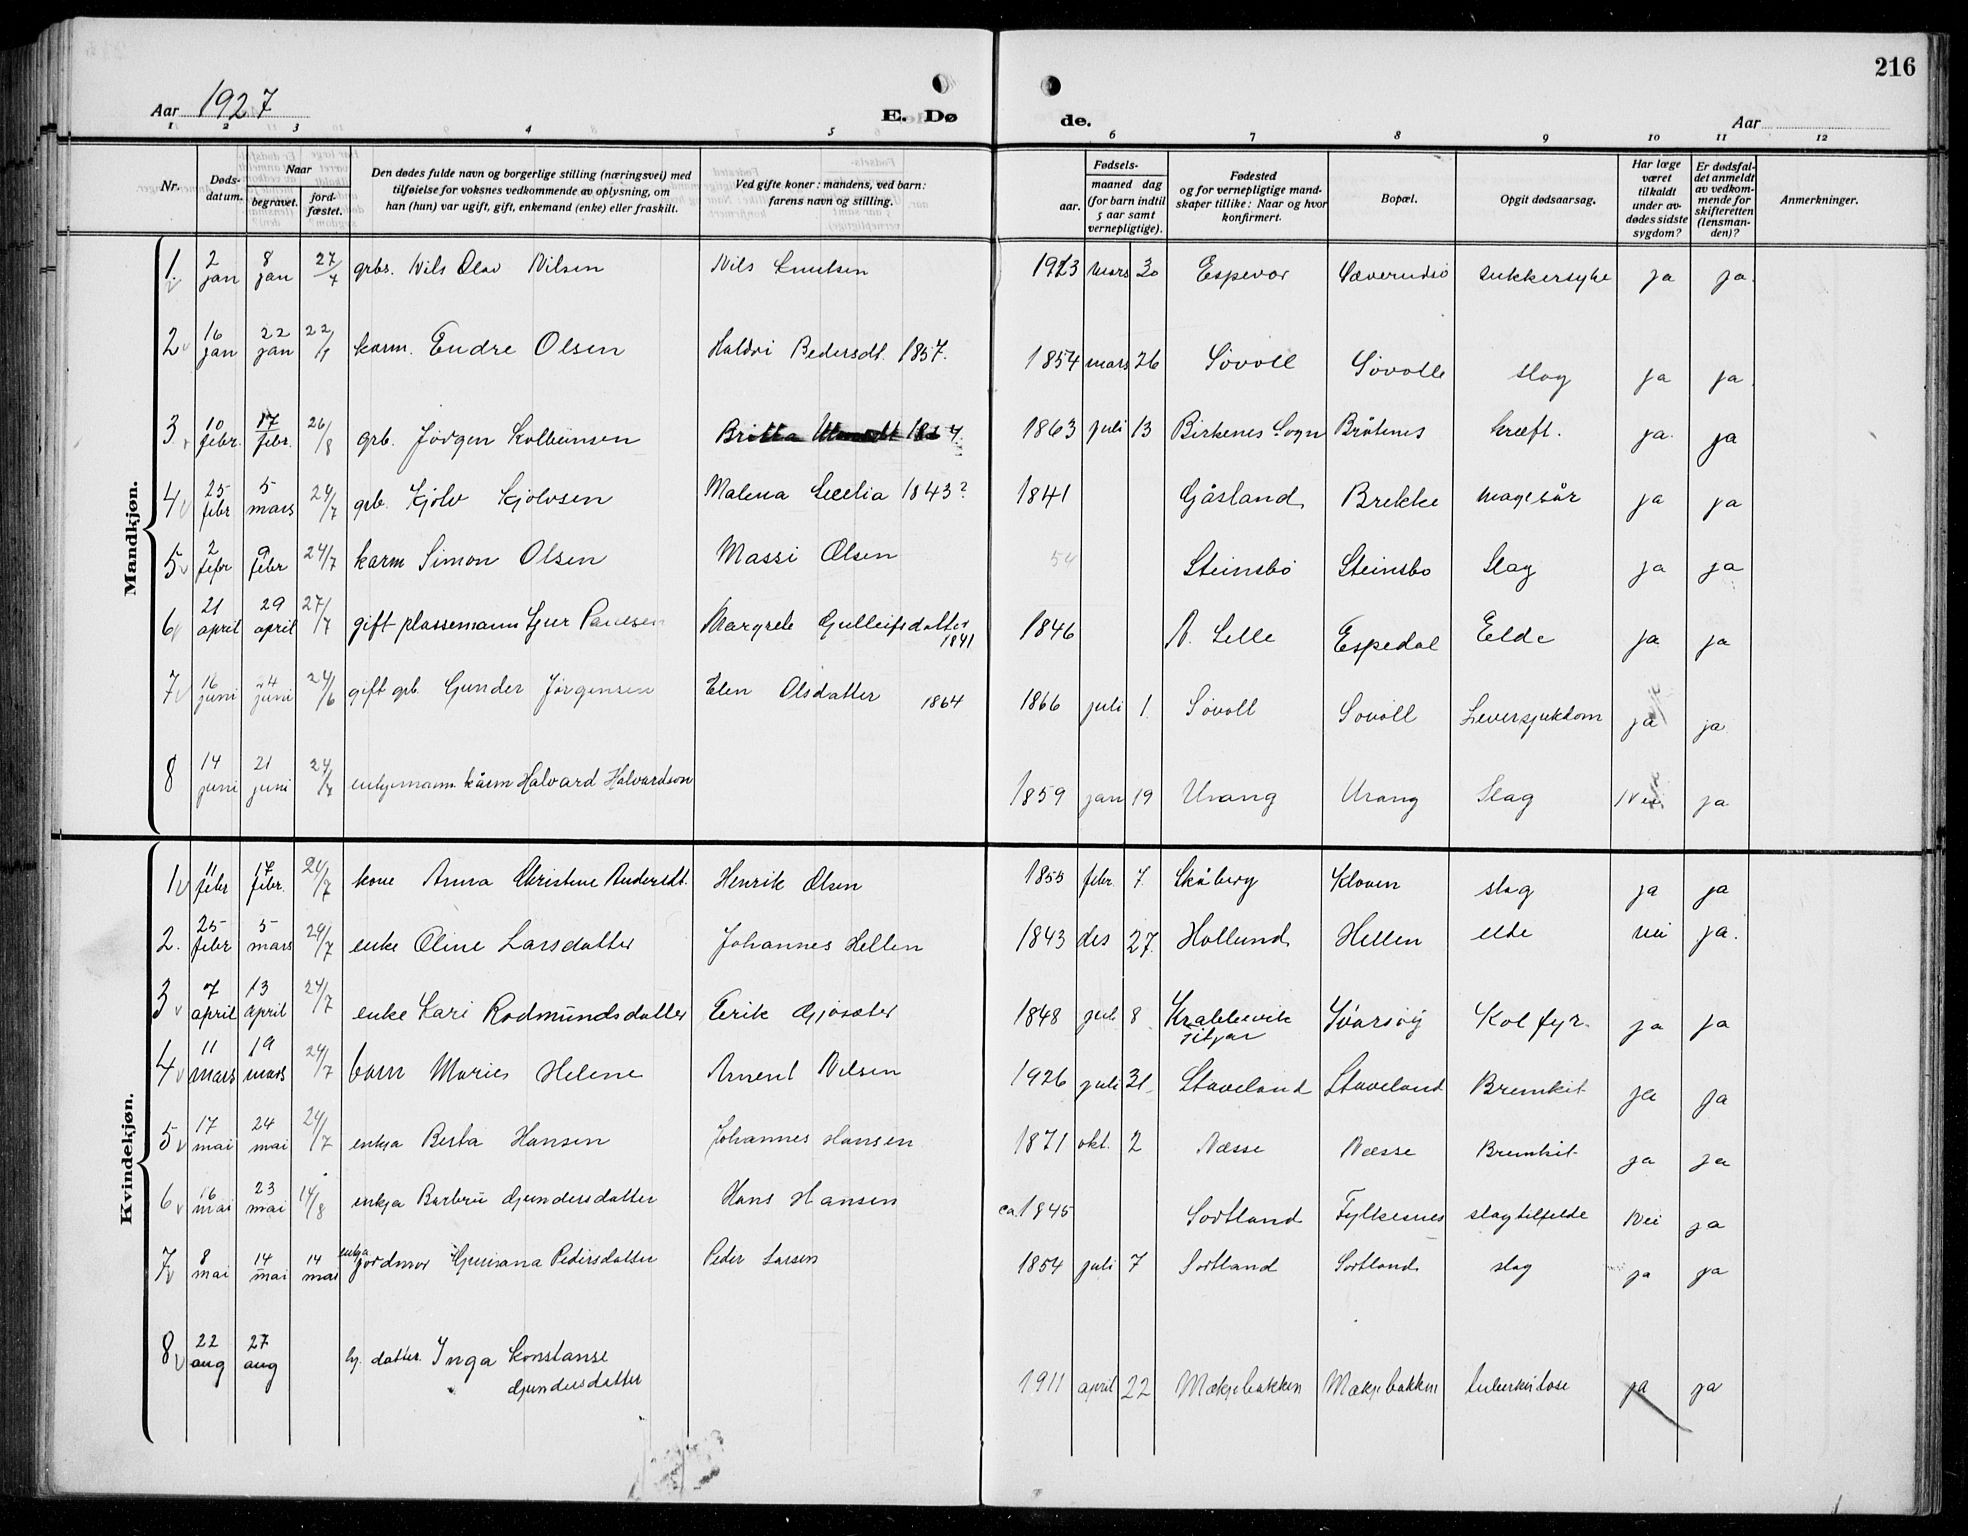 216
Aar 1927
E. Dø
de.
Aar
1 2 3 4 5 6 7 8 9 10 11 12
Nr.
Døds-
datum.
Naar
begravet.
jord-
fæstet.
Den dødes fulde navn og borgerlige stilling (næringsvei) med
tilføielse for voksnes vedkommende av oplysning, om
han (hun) var ugift, gift, enkemand (enke) eller fraskilt.
Ved gifte koner: mandens, ved barn:
farens navn og stilling.
Fødsels-
aar.
maaned dag
(for barn indtil
5 aar samt
vernepligtige).
Fødested
og for vernepligtige mand-
skaper tillike: Naar og hvor
konfirmert.
Bopæl.
Opgit dødsaarsag.
Har læge
været
tilkaldt
under av-
dødes sidste
sygdom?
Er dødsfal-
det anmeldt
av vedkom-
mende for
skifteretten
(lensman-
den)?
Anmerkninger.
Mandkjøn.
1. 2 jan 8 jan 27/7 grbr. Nils Olav Nilsen Nils Knutsen 1913 mars 30 Espevær sukkersyke ja ja.
2 16 jan 22 jan 22/1 kårm. Endre Olsen Pedersdt. 1857. 1854 mars 26 Søvoll Søvolle slag ja ja.
3 10 febr. 17 febr. 26/8 grb. Jørgen Kolbeinsen Britta 1863 juli 13 Birkenes Sogn Bråtenes kræft. ja. ja
4 25 febr 5 mars 24/7 grb. Kjølv Kjølvsen Malena Secelia 1843? 1841 Gåsland Brekke magesår ja ja
5 2 febr 9 febr 24/7 karm Simon Olsen Massi Olsen 54 Steinsbø Steinsbo Slag ja ja
6 21 april 29 april 27/7 gift plassemann Sjur Paulsen Margrete Gulleifsdatter 1841 1846 N. Lelle Espedal Elde ja ja
7 16 juni 24 juni 24/6 gift grb. Gunder Jørgensen Elen Olsdatter 1864 1866 juli 1 Søvoll Sovoll Leversjukdom ja ja
8 14 juni 21 juni 24/7 enkjemann kårm Halvard Halvardson 1859 jan 19 Urang Urang Slag Nei ja
Kvindekjøn.
1 11 febr 17 febr. 24/7 kone Anna Christine Andersdt. Henrik Olsen 1855 febr. 7. Skåberg Kloven slag ja ja
2. 25 febr 5 mars 29/7 enke Oline Larsdatter Johannes Hellen 1843 des 27. Hollund Hellen elde nei ja.
3 7 april 13 april 24/7 enke Kari Rodmundsdatter Erik Gjøsæter 1848 juli 8 Krabbevik Fitjar Kolfyr. ja ja
4 11 mars 19 mars 24/7 barn Maries Helene Nilsen 1926 juli 31. Staveland Staveland Bronkit ja ja
5 17 mai 24 mai 24/7 enkja Berta Hansen Johannes Hansen 1871 okt. 2 Næsse Næsse Bronkit ja ja
6 16 mai 23 mai 14/8 enkja Barbru Gjundersdatter Hans Hansen ca 1845 Sortland Fylkesnes slagtilfelde Nei ja
7 8 mai 14 mai 14 mai enkja jordmor Pedersdatter Peder Larsen 1854 juli 7 Sortland Sortland slag ja ja
8 22 aug 27 aug datter. Inga Konstanse
Gjundersdatter 1911 april 22 Mækjebakken Mækjebakken tuberkulose ja ja